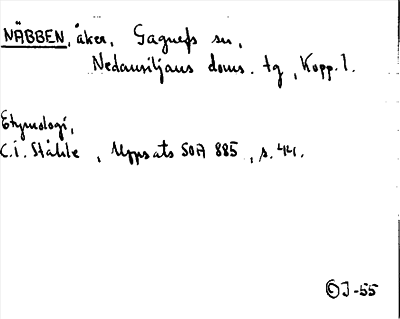 NÄBBEN, åker, Gagnefs sn,
Nedansiljans doms. tg, Kopp. l.
Etymologi,
C.I. Ståhle, Uppsats SOA 885, s. 44.
© J-55